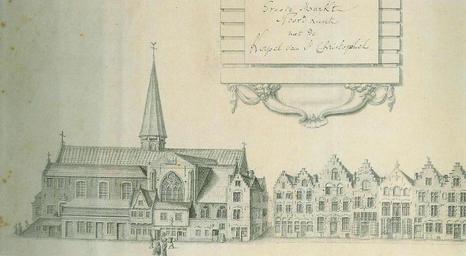 Groote Markt
Noord kant
met de
Kapel van S Christophel